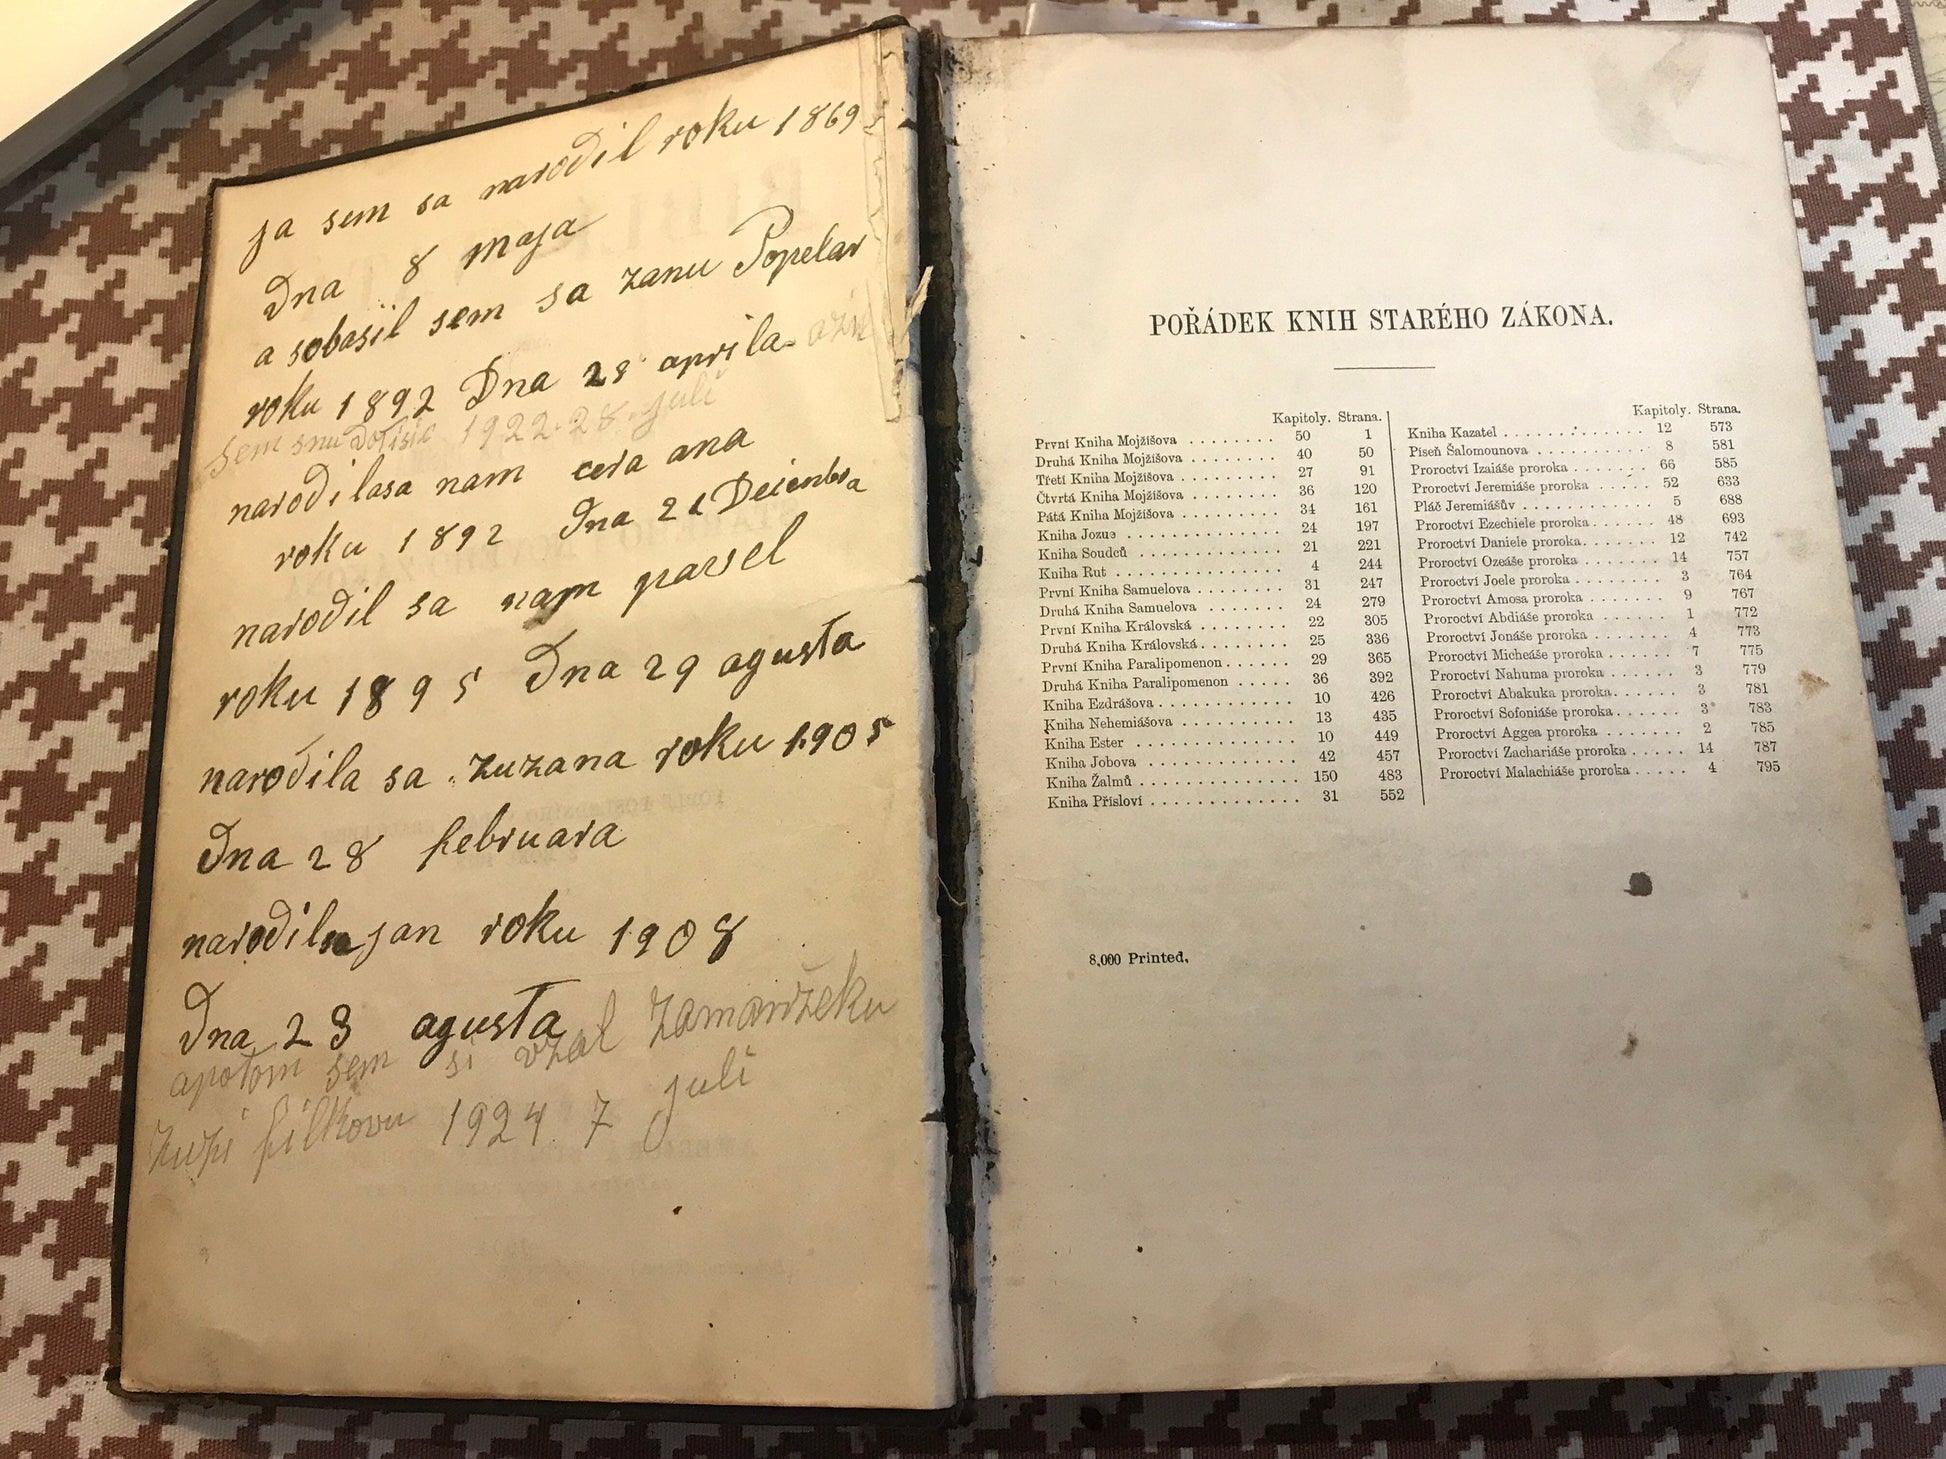 ja sem sa narodil roku 1869
Dna 8 maja
a sobasil sem sa zanu Popelar
roku 1892 Dna 28 aprila
sem snu 1922 28 juli
narodilasa nam cera ana
roku 1892 Dna 21
narodil sa nam pavel
roku 1895 Dna 29 agusta
narodila sa zuzana roku 1905
Dna 28 februara
jan roku 1908
Dna 23 agusta
apotom sem si vzal zamanželku
zuzi filkovu 1924 7 juli
POŘÁDEK KNIH STARÉHO ZÁKONA.
Kapitoly. Strana.
První Kniha Mojžíšova ........ 50 1
Druhá Kniha Mojžíšova ........ 40 50
Třetí Kniha Mojžíšova ........ 27 91
Čtvrtá Kniha Mojžíšova ........ 36 120
Pátá Kniha Mojžíšova ........ 34 161
Kniha Jozue ............ 24 197
Kniha Soudců ............ 21 221
Kniha Rut ............ 4 244
První Kniha Samuelova ....... 31 247
Druhá Kniha Samuelova ....... 24 279
První Kniha Královská ........ 22 305
Druhá Kniha Královská ........ 25 336
První Kniha Paralipomenon ...... 29 365
Druhá Kniha Paralipomenon ..... 36 392
Kniha Ezdrášova ........... 10 426
Kniha Nehemiášova ......... 13 435
Kniha Ester ............ 10 449
Kniha Jobova ............ 42 457
Kniha Žalmů ............ 150 483
Kniha Přísloví ............. 31 552
Kapitoly. Strana.
Kniha Kazatel ............. 12 573
Píseň Šalomounova .......... 8 581
Proroctví Izaiáše proroka ....... 66 585
Proroctví Jeremiáše proroka ..... 52 633
Pláč Jeremiášův ............ 5 688
Proroctví Ezechiele proroka ...... 48 693
Proroctví Daniele proroka ....... 12 742
Proroctví Ozeáše proroka ....... 14 757
Proroctví Joele proroka ........ 3 764
Proroctví Amosa proroka ....... 9 767
Proroctví Abdiáše proroka ...... 1 772
Proroctví Jonáše proroka ....... 4 773
Proroctví Micheáše proroka ...... 7 775
Proroctví Nahuma proroka ...... 3 779
Proroctví Abakuka proroka ...... 3 781
Proroctví Sofoniáše proroka ...... 3 783
Proroctví Aggea proroka ....... 2 785
Proroctví Zachariáše proroka ..... 14 787
Proroctví Malachiáše proroka ..... 4 795
8,000 Printed.